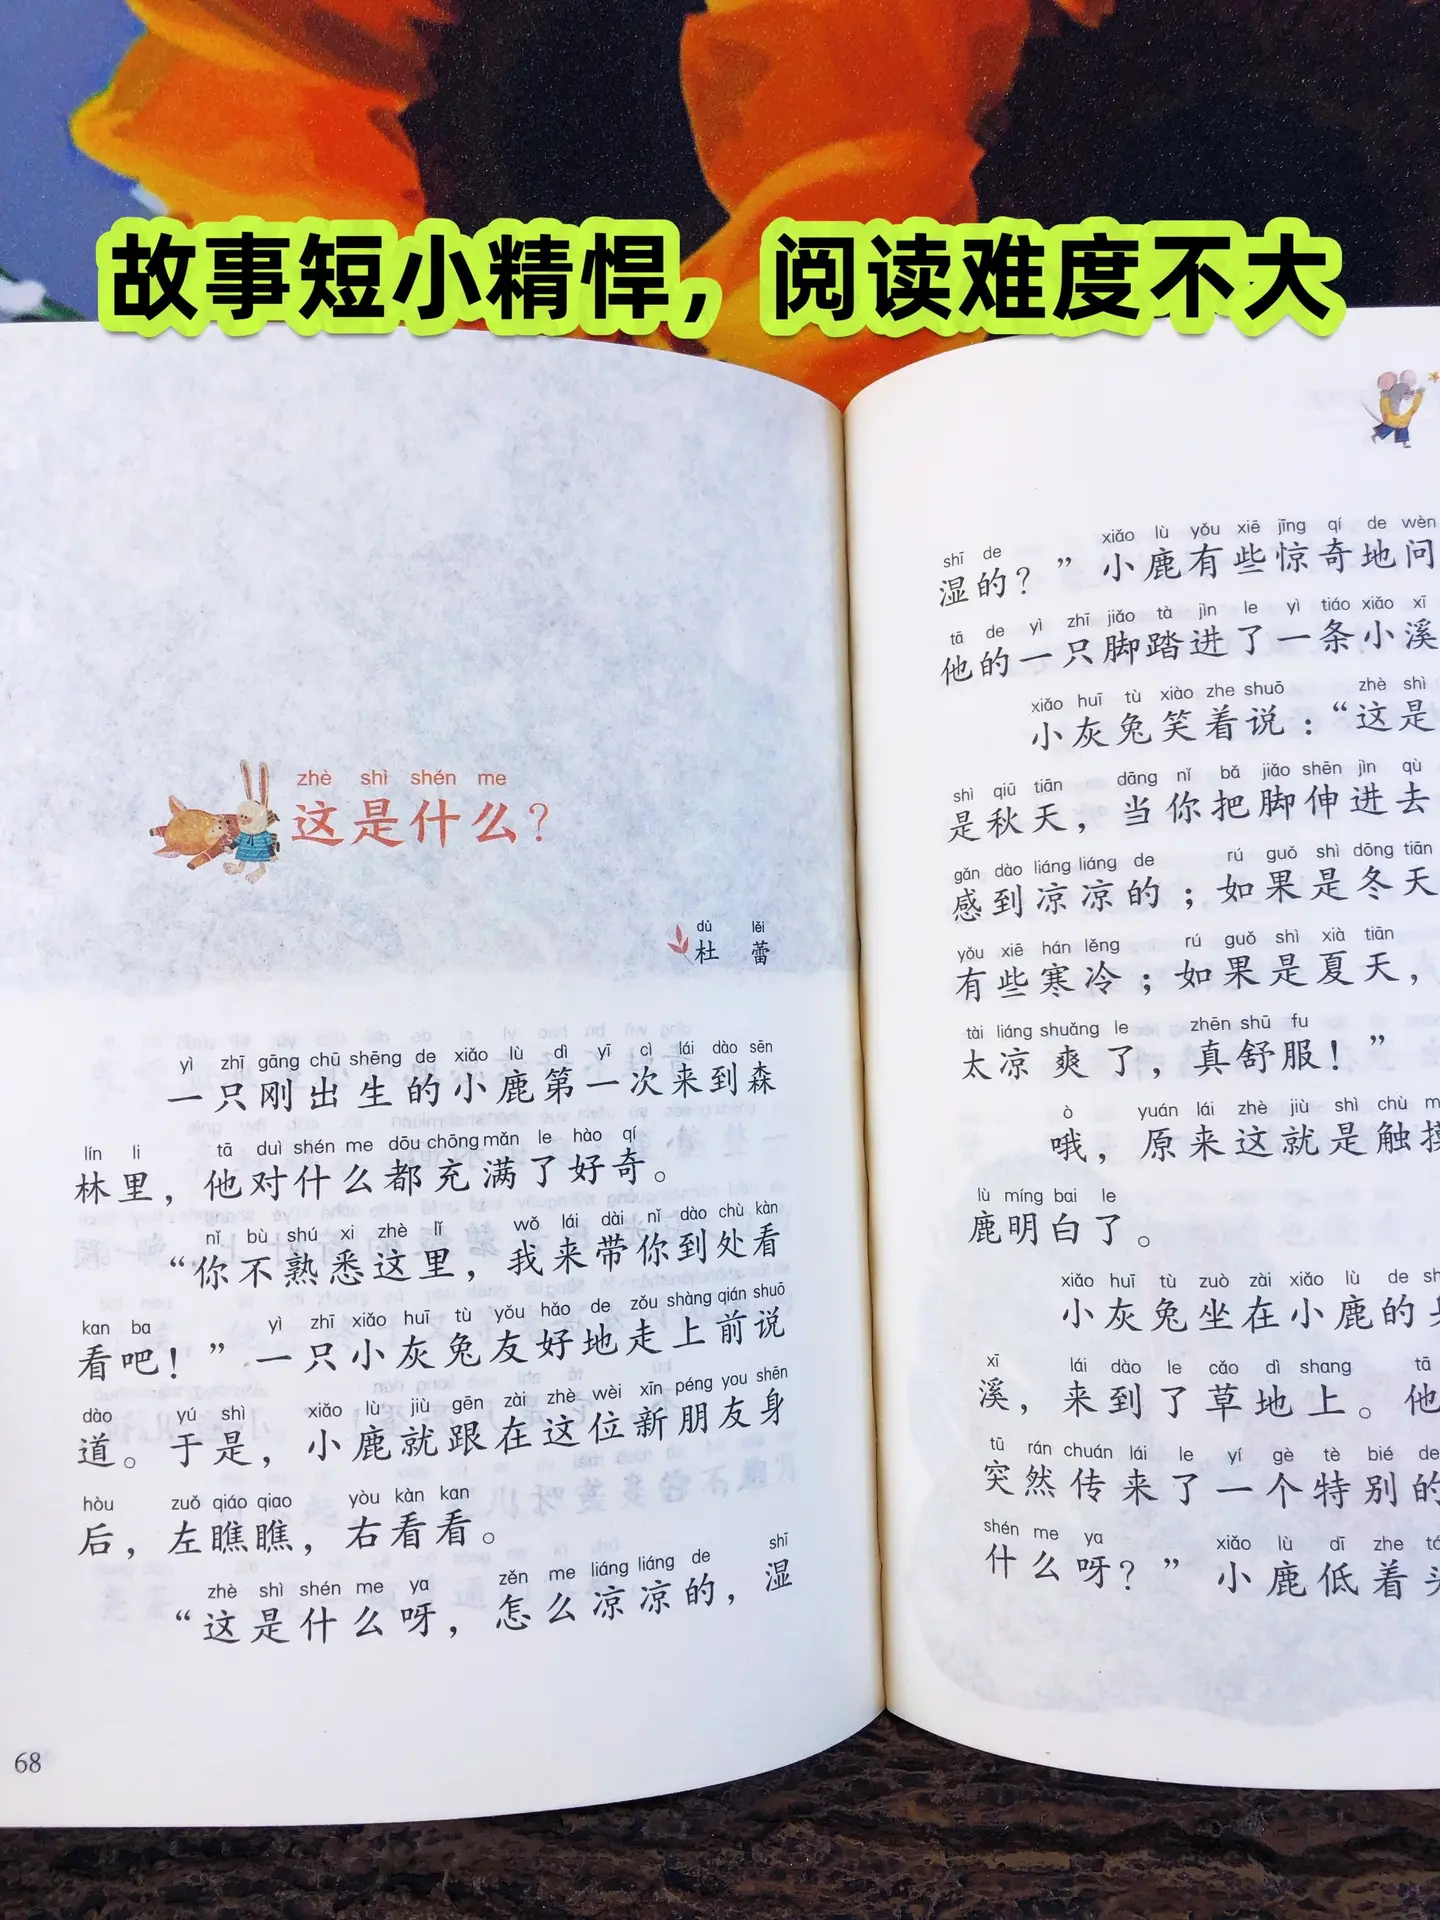 故事短小精悍，阅读难度不大
zhè shì shén me
这是什么？
dù lěi
杜 蕾
yì zhī gāng chū shēng de xiǎo lù dì yī cì lái dào sēn
一只刚出生的小鹿第一次来到森
lín li tā duì shén me dōu chōng mǎn le hào qí
林里，他对什么都充满了好奇。
nǐ bù shú xi zhè lǐ wǒ lái dài nǐ dào chù kàn
“你不熟悉这里，我来带你到处看
kan ba yì zhī xiǎo huī tù yǒu hǎo de zǒu shàng qián shuō
看吧！”一只小灰兔友好地走上前说
dào yú shì xiǎo lù jiù gēn zài zhè wèi xīn péng you shēn
道。于是，小鹿就跟在这位新朋友身
hòu zuǒ qiáo qiao yòu kàn kan
后，左瞧瞧，右看看。
zhè shì shén me ya zěn me liáng liáng de shī
“这是什么呀，怎么凉凉的，湿
68
shī de xiǎo lù yǒu xiē jīng qí de wèn
湿的？”小鹿有些惊奇地问
tā de yì zhī jiǎo tà jìn le yì tiáo xiǎo xī
他的一只脚踏进了一条小溪
xiǎo huī tù xiào zhe shuō zhè shì
小灰兔笑着说：“这是
shì qiū tiān dāng nǐ bǎ jiǎo shēn jìn qù
是秋天，当你把脚伸进去
gǎn dào liáng liáng de rú guǒ shì dōng tiān
感到凉凉的；如果是冬天
yǒu xiē hán lěng rú guǒ shì xià tiān
有些寒冷；如果是夏天，
tài liáng shuǎng le zhēn shū fu
太凉爽了，真舒服！”
ò yuán lái zhè jiù shì chù
哦，原来这就是触摸
lù míng bai le
鹿明白了。
xiǎo huī tù zuò zài xiǎo lù de
小灰兔坐在小鹿的
xī lái dào le cǎo dì shang tā
溪，来到了草地上。他
tū rán chuán lái le yí gè tè bié de
突然传来了一个特别的
shén me ya xiǎo lù dī zhe
什么呀？”小鹿低着头